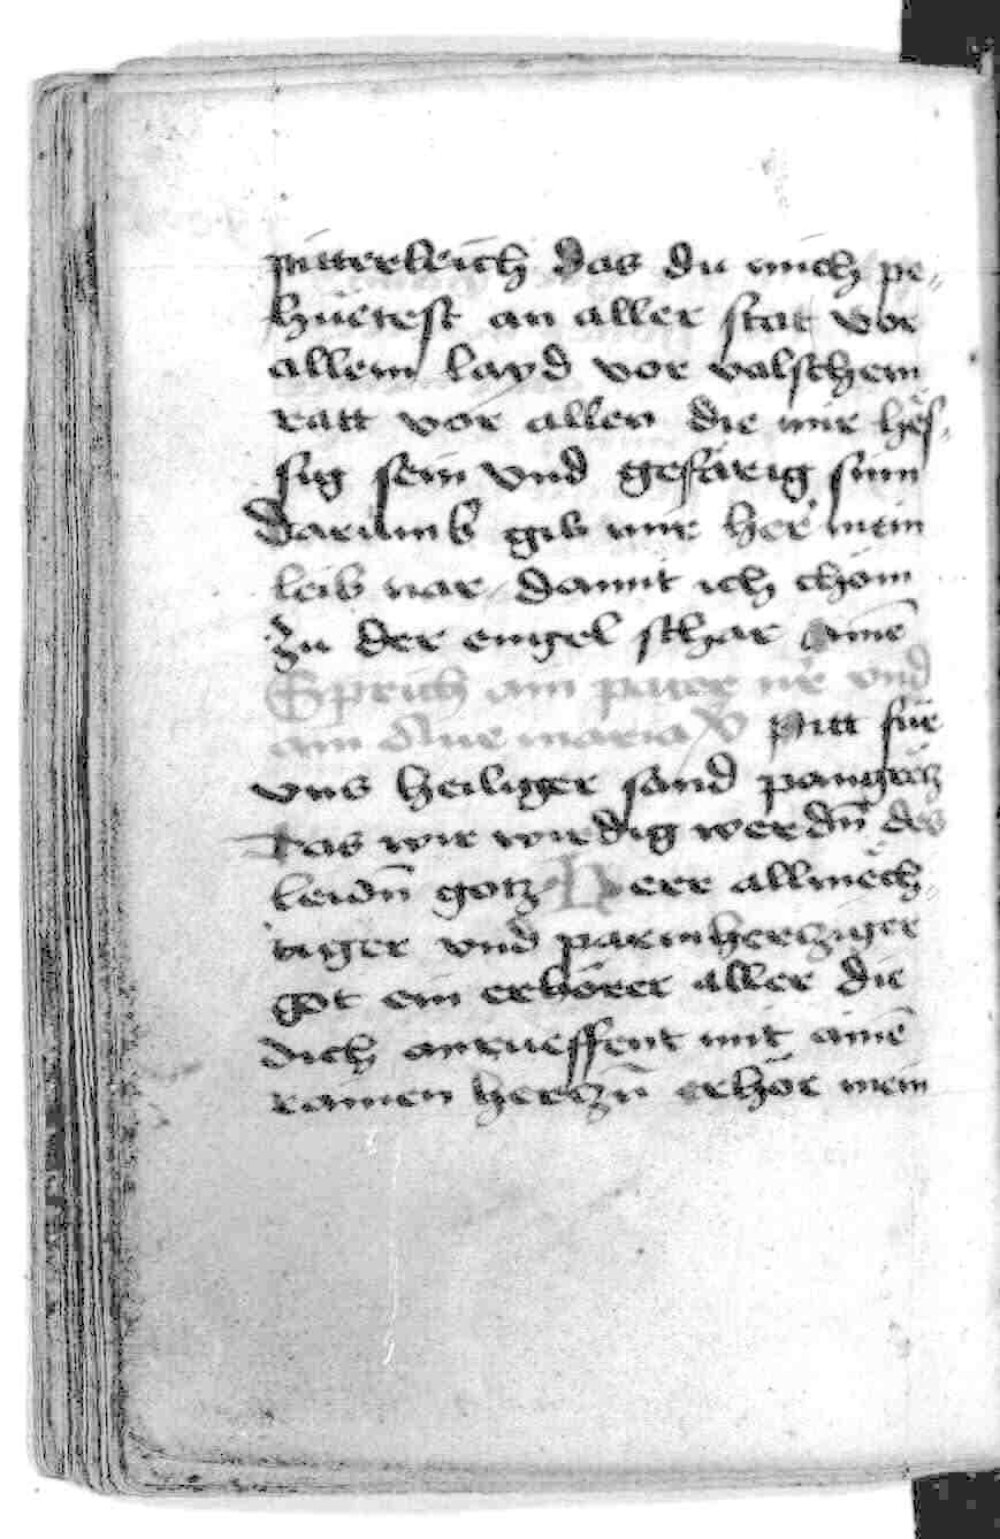 pitterleich das du mich pe„
hüetest an aller stat vor
allem layd vor valschem
ratt vor allen die mir hës„
sig sein vnd gefärig sinn
Darumb gib mir her mein
leib nar damit ich chöm
zu der engel schar Amē
Sprich ain pater nr̄ vnd
ain Aue maria V Pitt für
vns heiliger sand pangrëtz
Das wir wirdig werdn̄ des
leidn̄ gotz Herr allmëch„
tiger vnd parmhercziger
got ein erhörer aller die
dich anrueffent mit aimē
rainen herczn̄ erhör mein